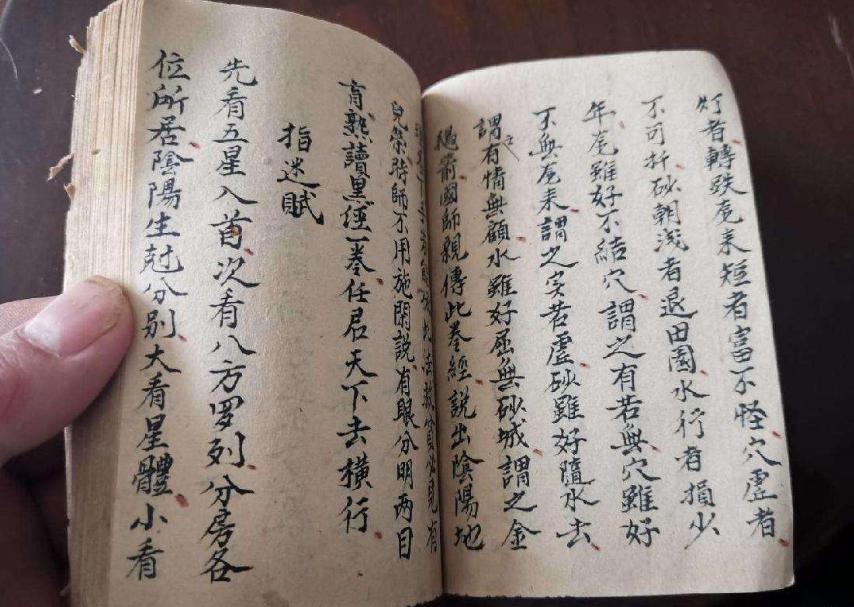 灯者轉跌尾来短者富不怪穴虛者
不可扦砂朝浅者退田園水行者損少
年尾雖好不結穴謂之有若無穴雖好
不無尾来謂之实若虛砂雖好隨水去
謂之有情無顧水雖好屈無砂城謂之金
箭國師親傳此巻經説出陰陽地
此法救貧必見有
兒榮時師不用施閑説有眼分明两目
育熟讀黑經一巻任君天下去橫行
指迷賦
先看五星入首次看八方罗列分房各
位所居陰陽生尅分别大看星體小看